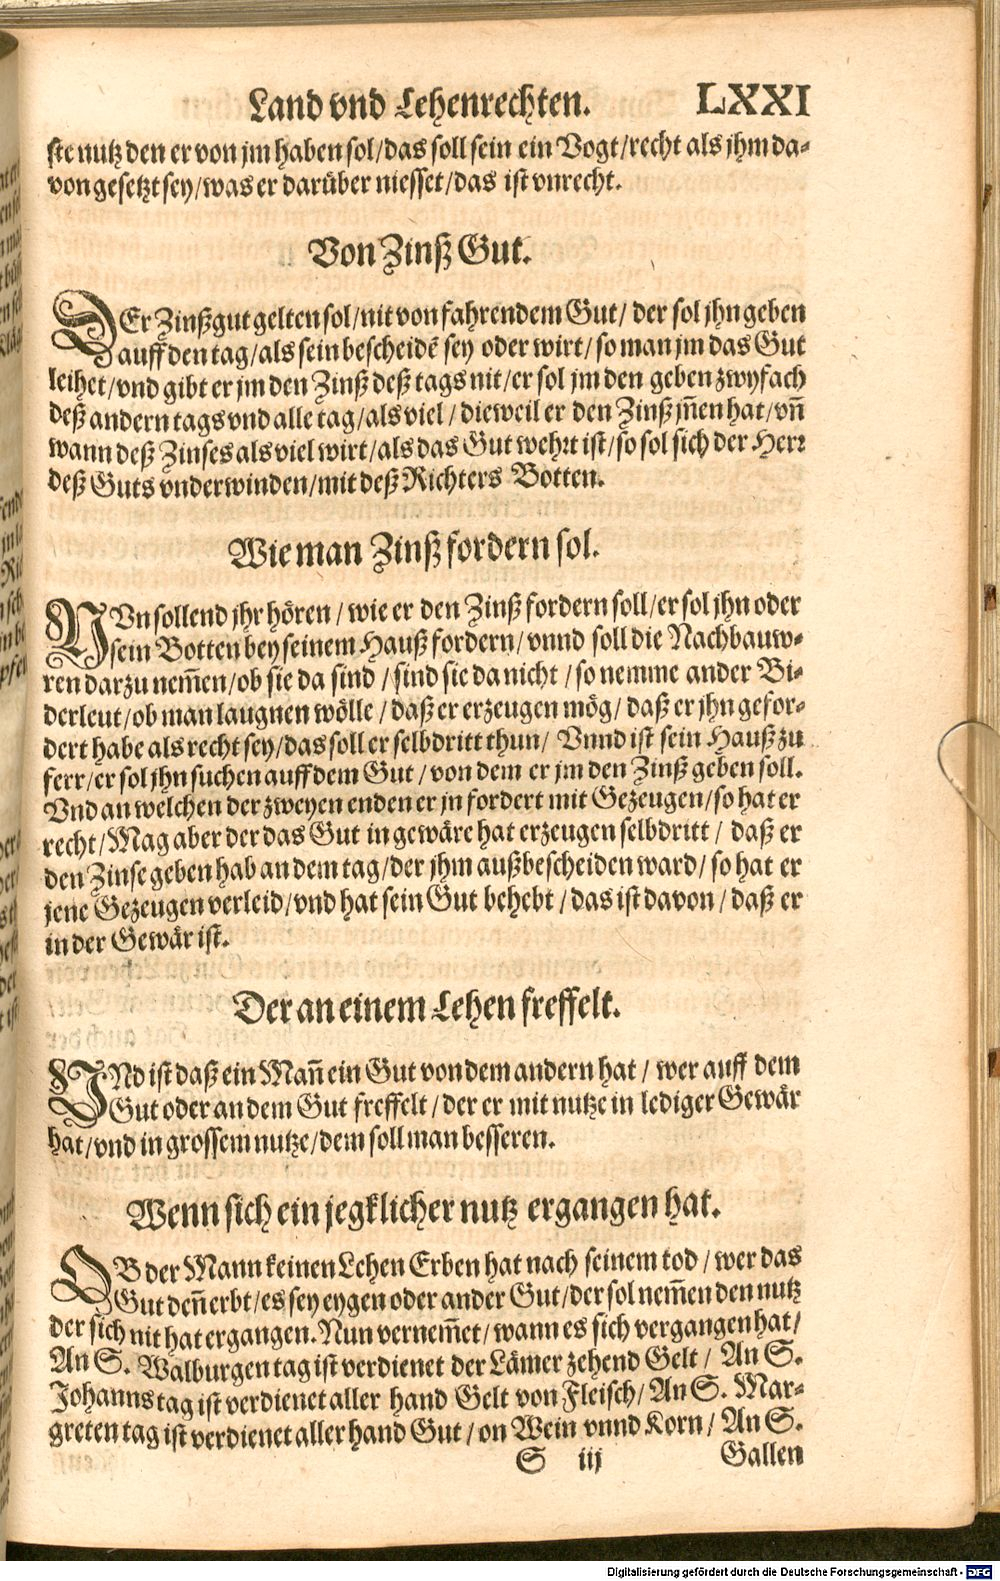 Land vnd Lehenrechten. LXXI
ste nutz den er von jm haben sol/das soll sein ein Vogt/recht als jhm da-
von gesetzt sey/was er darüber niesset/das ist vnrecht.
Von Zinß Gut.
DEr Zinßgut gelten sol/nit von fahrendem Gut/ der sol jhn geben
auff den tag/als sein bescheidē sey oder wirt/so man jm das Gut
leihet/vnd gibt er jm den Zinß deß tags nit/er sol jm den geben zwyfach
deß andern tags vnd alle tag/als viel/dieweil er den Zinß jn̄en hat/vn̄
wann deß Zinses als viel wirt/als das Gut wehrt ist/so sol sich der Herr
deß Guts vnderwinden/mit deß Richters Botten.
Wie man Zinß fordern sol.
NVn sollend jhr hören/wie er den Zinß fordern soll/er sol jhn oder
sein Botten bey seinem Hauß fordern/vnnd soll die Nachbauw-
ren darzu nem̄en/ob sie da sind/sind sie da nicht/so nemme ander Bi-
derleut/ob man laugnen wölle/daß er erzeugen mög/daß er jhn gefor-
dert habe als recht sey/das soll er selbdritt thun/ Vnnd ist sein Hauß zu
ferr/er sol jhn suchen auff dem Gut/von dem er jm den Zinß geben soll.
Vnd an welchen der zweyen enden er jn fordert mit Gezeugen/so hat er
recht/Mag aber der das Gut in gewäre hat erzeugen selbdritt/daß er
den Zinse geben hab an dem tag/der jhm außbescheiden ward/so hat er
jene Gezeugen verleid/vnd hat sein Gut behebt/das ist davon/daß er
in der Gewär ist.
Der an einem Lehen freffelt.
VNd ist daß ein Man̄ ein Gut von dem andern hat/wer auff dem
Gut oder an dem Gut freffelt/der er mit nutze in lediger Gewär
hat/vnd in grossem nutze/dem soll man besseren.
Wenn sich ein jegklicher nutz ergangen hat.
OB der Mann keinen Lehen Erben hat nach seinem tod/wer das
Gut den̄ erbt/es sey eygen oder ander Gut/der sol nem̄en den nutz
der sich nit hat ergangen. Nun vernem̄et/wann es sich vergangen hat/
An S. Walburgen tag ist verdienet der Lämer zehend Gelt/ An S.
Johanns tag ist verdienet aller hand Gelt von Fleisch/An S. Mar-
greten tag ist verdienet aller hand Gut/on Wein vnnd Korn/An S.
S iij Gallen
Digitalisierung gefördert durch die Deutsche Forschungsgemeinschaft - DFG